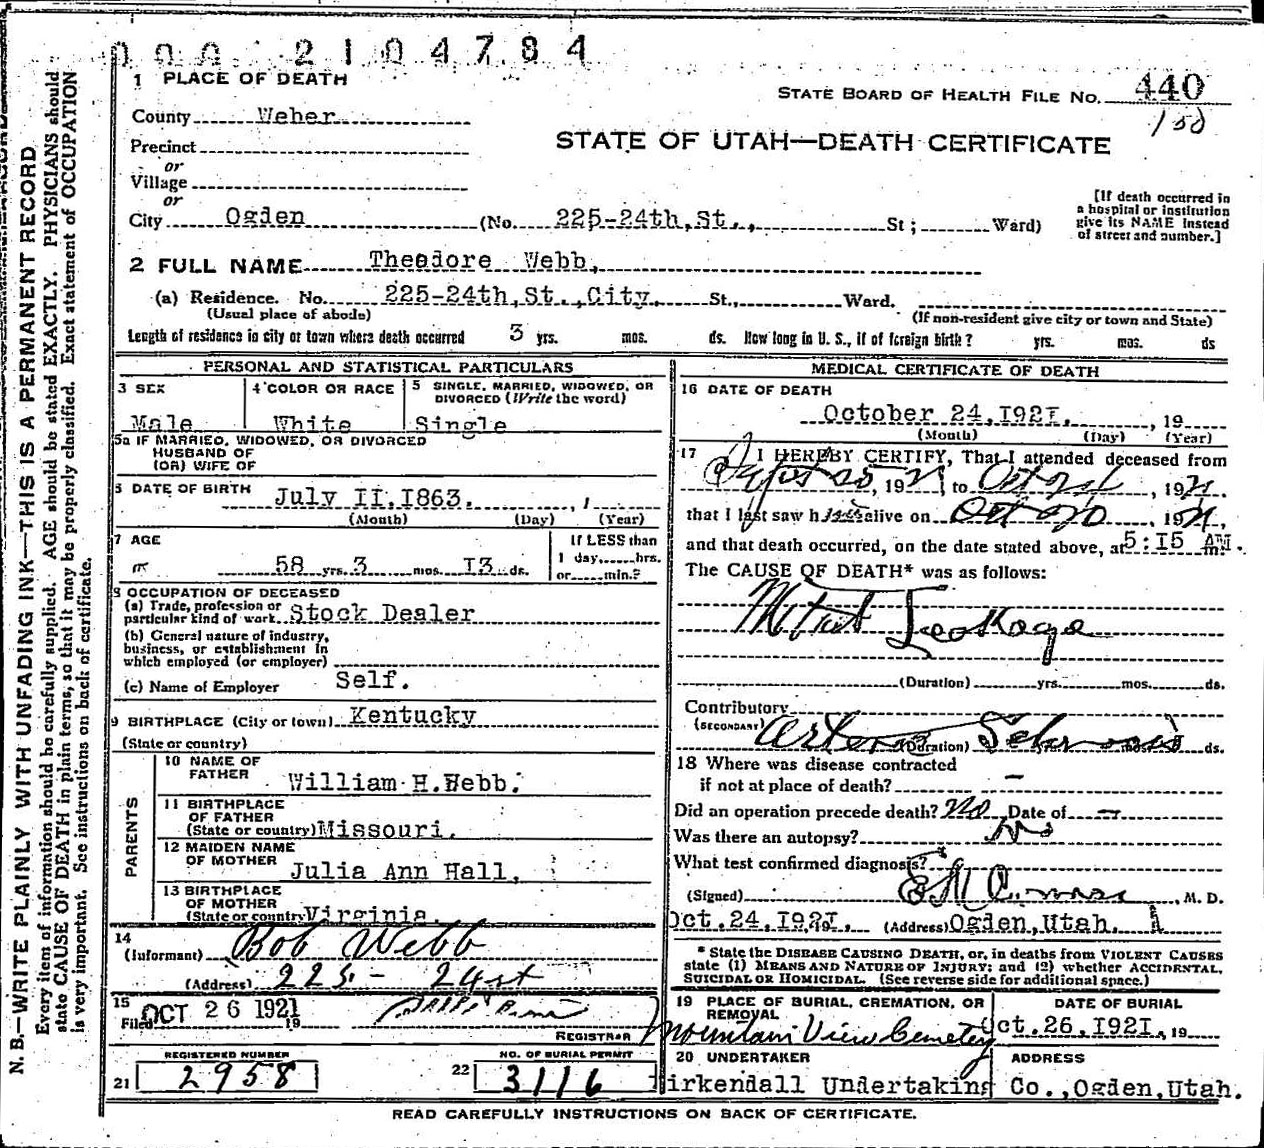 000 2104784
1 PLACE OF DEATH
STATE BOARD OF HEALTH FILE NO. 440
150
County Weber
STATE OF UTAH—DEATH CERTIFICATE
Precinct
or
Village
or
City Ogden (No. 225-24th,St., St; Ward)
[If death occurred in
a hospital or institution
give its NAME instead
of street and number.]
2 FULL NAME Theodore Webb,
(a) Residence. No. 225-24th,St.,City, St., Ward.
(Usual place of abode) (If non-resident give city or town and State)
Length of residence in city or town where death occurred 3 yrs. mos. ds. How long in U. S., if of foreign birth? yrs. mos. ds
PERSONAL AND STATISTICAL PARTICULARS
3 SEX
Male
4 COLOR OR RACE
White
5 SINGLE, MARRIED, WIDOWED, OR
DIVORCED (Write the word)
Single
5a IF MARRIED, WIDOWED, OR DIVORCED
HUSBAND OF
(OR) WIFE OF
6 DATE OF BIRTH July II,I863.
(Month) (Day) (Year)
7 AGE
58 yrs. 3 mos. I3 ds.
If LESS than
1 day,......hrs.
or......min.?
8 OCCUPATION OF DECEASED
(a) Trade, profession or
particular kind of work Stock Dealer
(b) General nature of industry,
business, or establishment in
which employed (or employer)
(c) Name of Employer Self.
9 BIRTHPLACE (City or town) Kentucky
(State or country)
PARENTS
10 NAME OF
FATHER William H.Webb.
11 BIRTHPLACE
OF FATHER
(State or country) Missouri.
12 MAIDEN NAME
OF MOTHER Julia Ann Hall,
13 BIRTHPLACE
OF MOTHER
(State or country) Virginia.
14
(Informant) Bob Webb
(Address) 225 - 24 st
15
Filed OCT 26 1921 19
REGISTRAR
REGISTERED NUMBER
21 2958
NO. OF BURIAL PERMIT
22 3116
MEDICAL CERTIFICATE OF DEATH
16 DATE OF DEATH
October 24,I92I. , 19
(Month) (Day) (Year)
17 I HEREBY CERTIFY, That I attended deceased from
, 1921 to Oct 24 , 1921.
that I last saw him alive on Oct 20 , 1921,
and that death occurred, on the date stated above, at 5:I5 AM.
The CAUSE OF DEATH* was as follows:
Mitral Leakage
(Duration) yrs. mos. ds.
Contributory
(SECONDARY) Arterio Sclerosis
(Duration) ds.
18 Where was disease contracted
if not at place of death? —
Did an operation precede death? No Date of —
Was there an autopsy? No
What test confirmed diagnosis?
(Signed) M. D.
Oct.24,I92I, 19 (Address) Ogden,Utah.
* State the DISEASE CAUSING DEATH, or, in deaths from VIOLENT CAUSES
state (1) MEANS AND NATURE OF INJURY; and (2) whether ACCIDENTAL,
SUICIDAL OR HOMICIDAL. (See reverse side for additional space.)
19 PLACE OF BURIAL, CREMATION, OR
REMOVAL
Mountain View Cemetery
DATE OF BURIAL
Oct.26,I92I, 19
20 UNDERTAKER
Kirkendall Undertaking
ADDRESS
Co.,Ogden,Utah.
READ CAREFULLY INSTRUCTIONS ON BACK OF CERTIFICATE.
N. B.—WRITE PLAINLY WITH UNFADING INK—THIS IS A PERMANENT RECORD
Every item of information should be carefully supplied. AGE should be stated EXACTLY. PHYSICIANS should
state CAUSE OF DEATH in plain terms, so that it may be properly classified. Exact statement of OCCUPATION
is very important. See instructions on back of certificate.